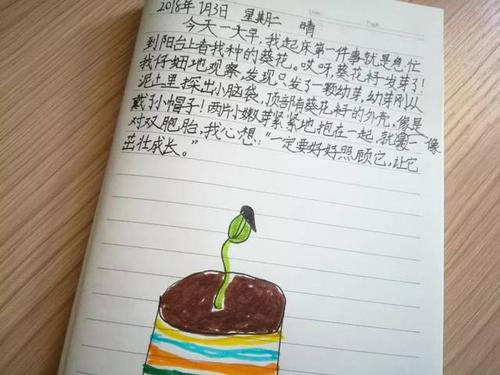 2018年1月3日 星期二 晴
今天一大早,我起床第一件事就是急忙
到阳台上看我种的葵花。哎呀,葵花籽发芽了!
我仔细地观察,发现只发了一颗幼芽,幼芽刚从
泥土里探出小脑袋,顶部有葵花籽的外壳,像是
戴了小帽子!两片小嫩芽紧紧地抱在一起,就像一
对双胞胎,我心想:“一定要好好照顾它,让它
茁壮成长。”